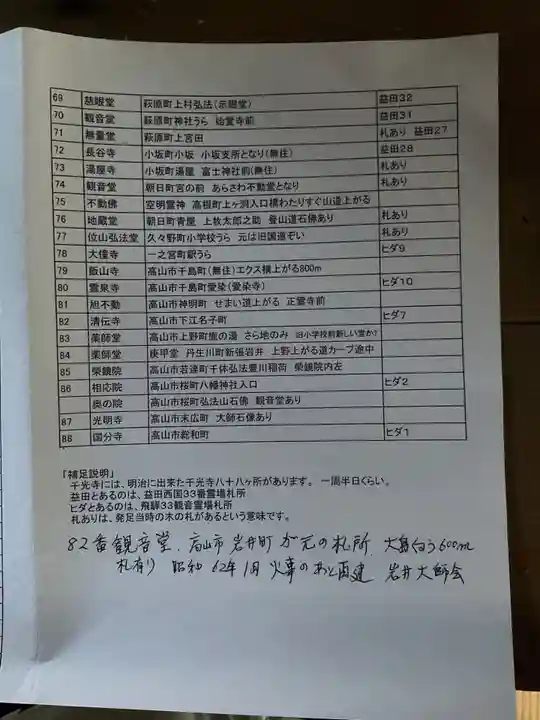 69 慈眼堂 萩原町上村弘法(示眼堂) 益田32
70 観音堂 萩原町神社うら 始霊寺前 益田31
71 無量堂 萩原町上宮田 札あり 益田27
72 長谷寺 小坂町小坂 小坂支所となり(無住) 益田28
73 湯屋寺 小坂町湯屋 富士神社前(無住) 札あり
74 観音堂 朝日町宮の前 あらさわ不動堂となり 札あり
75 不動佛 空明霊神 高根町上ヶ洞入口橋わたりすぐ山道上がる
76 地蔵堂 朝日町青屋 上牧太郎之助 登山道石佛あり 札あり
77 位山弘法堂 久々野町小学校うら 元は旧国道ぞい 札あり
78 大幢寺 一之宮町駅うら ヒダ9
79 飯山寺 高山市千島町(無住)エクス横上がる800m
80 霊泉寺 高山市千島町愛染(愛染寺) ヒダ10
81 旭不動 高山市神明町 せまい道上がる 正雲寺前
82 清伝寺 高山市下江名子町 ヒダ7
83 薬師堂 高山市上野町施の湯 さら地のみ 旧小学校前新しい堂か?
84 薬師堂 庚甲堂 丹生川町新張岩井 上野上がる道カーブ途中
85 栄鏡院 高山市若達町千体弘法豊川稲荷 栄鏡院内左
86 相応院 高山市桜町八幡神社入口 ヒダ2
奥の院 高山市桜町弘法山石佛 観音堂あり
87 光明寺 高山市末広町 大師石像あり
88 国分寺 高山市総和町 ヒダ1
「補足説明」
千光寺には、明治に出来た千光寺八十八ヶ所があります。 一周半日くらい。
益田とあるのは、益田西国33番霊場札所
ヒダとあるのは、飛騨33観音霊場札所
札ありは、発足当時の木の札があるという意味です。
82番観音堂、高山市岩井町が元の札所、大島白う600m
札有り 昭和62年1月 火事のあと再建 岩井大師会